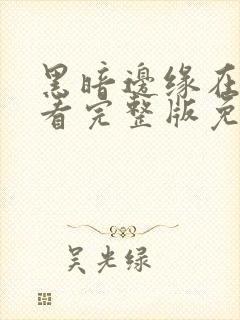 黑暗边缘在
看完整版免
吴光绿